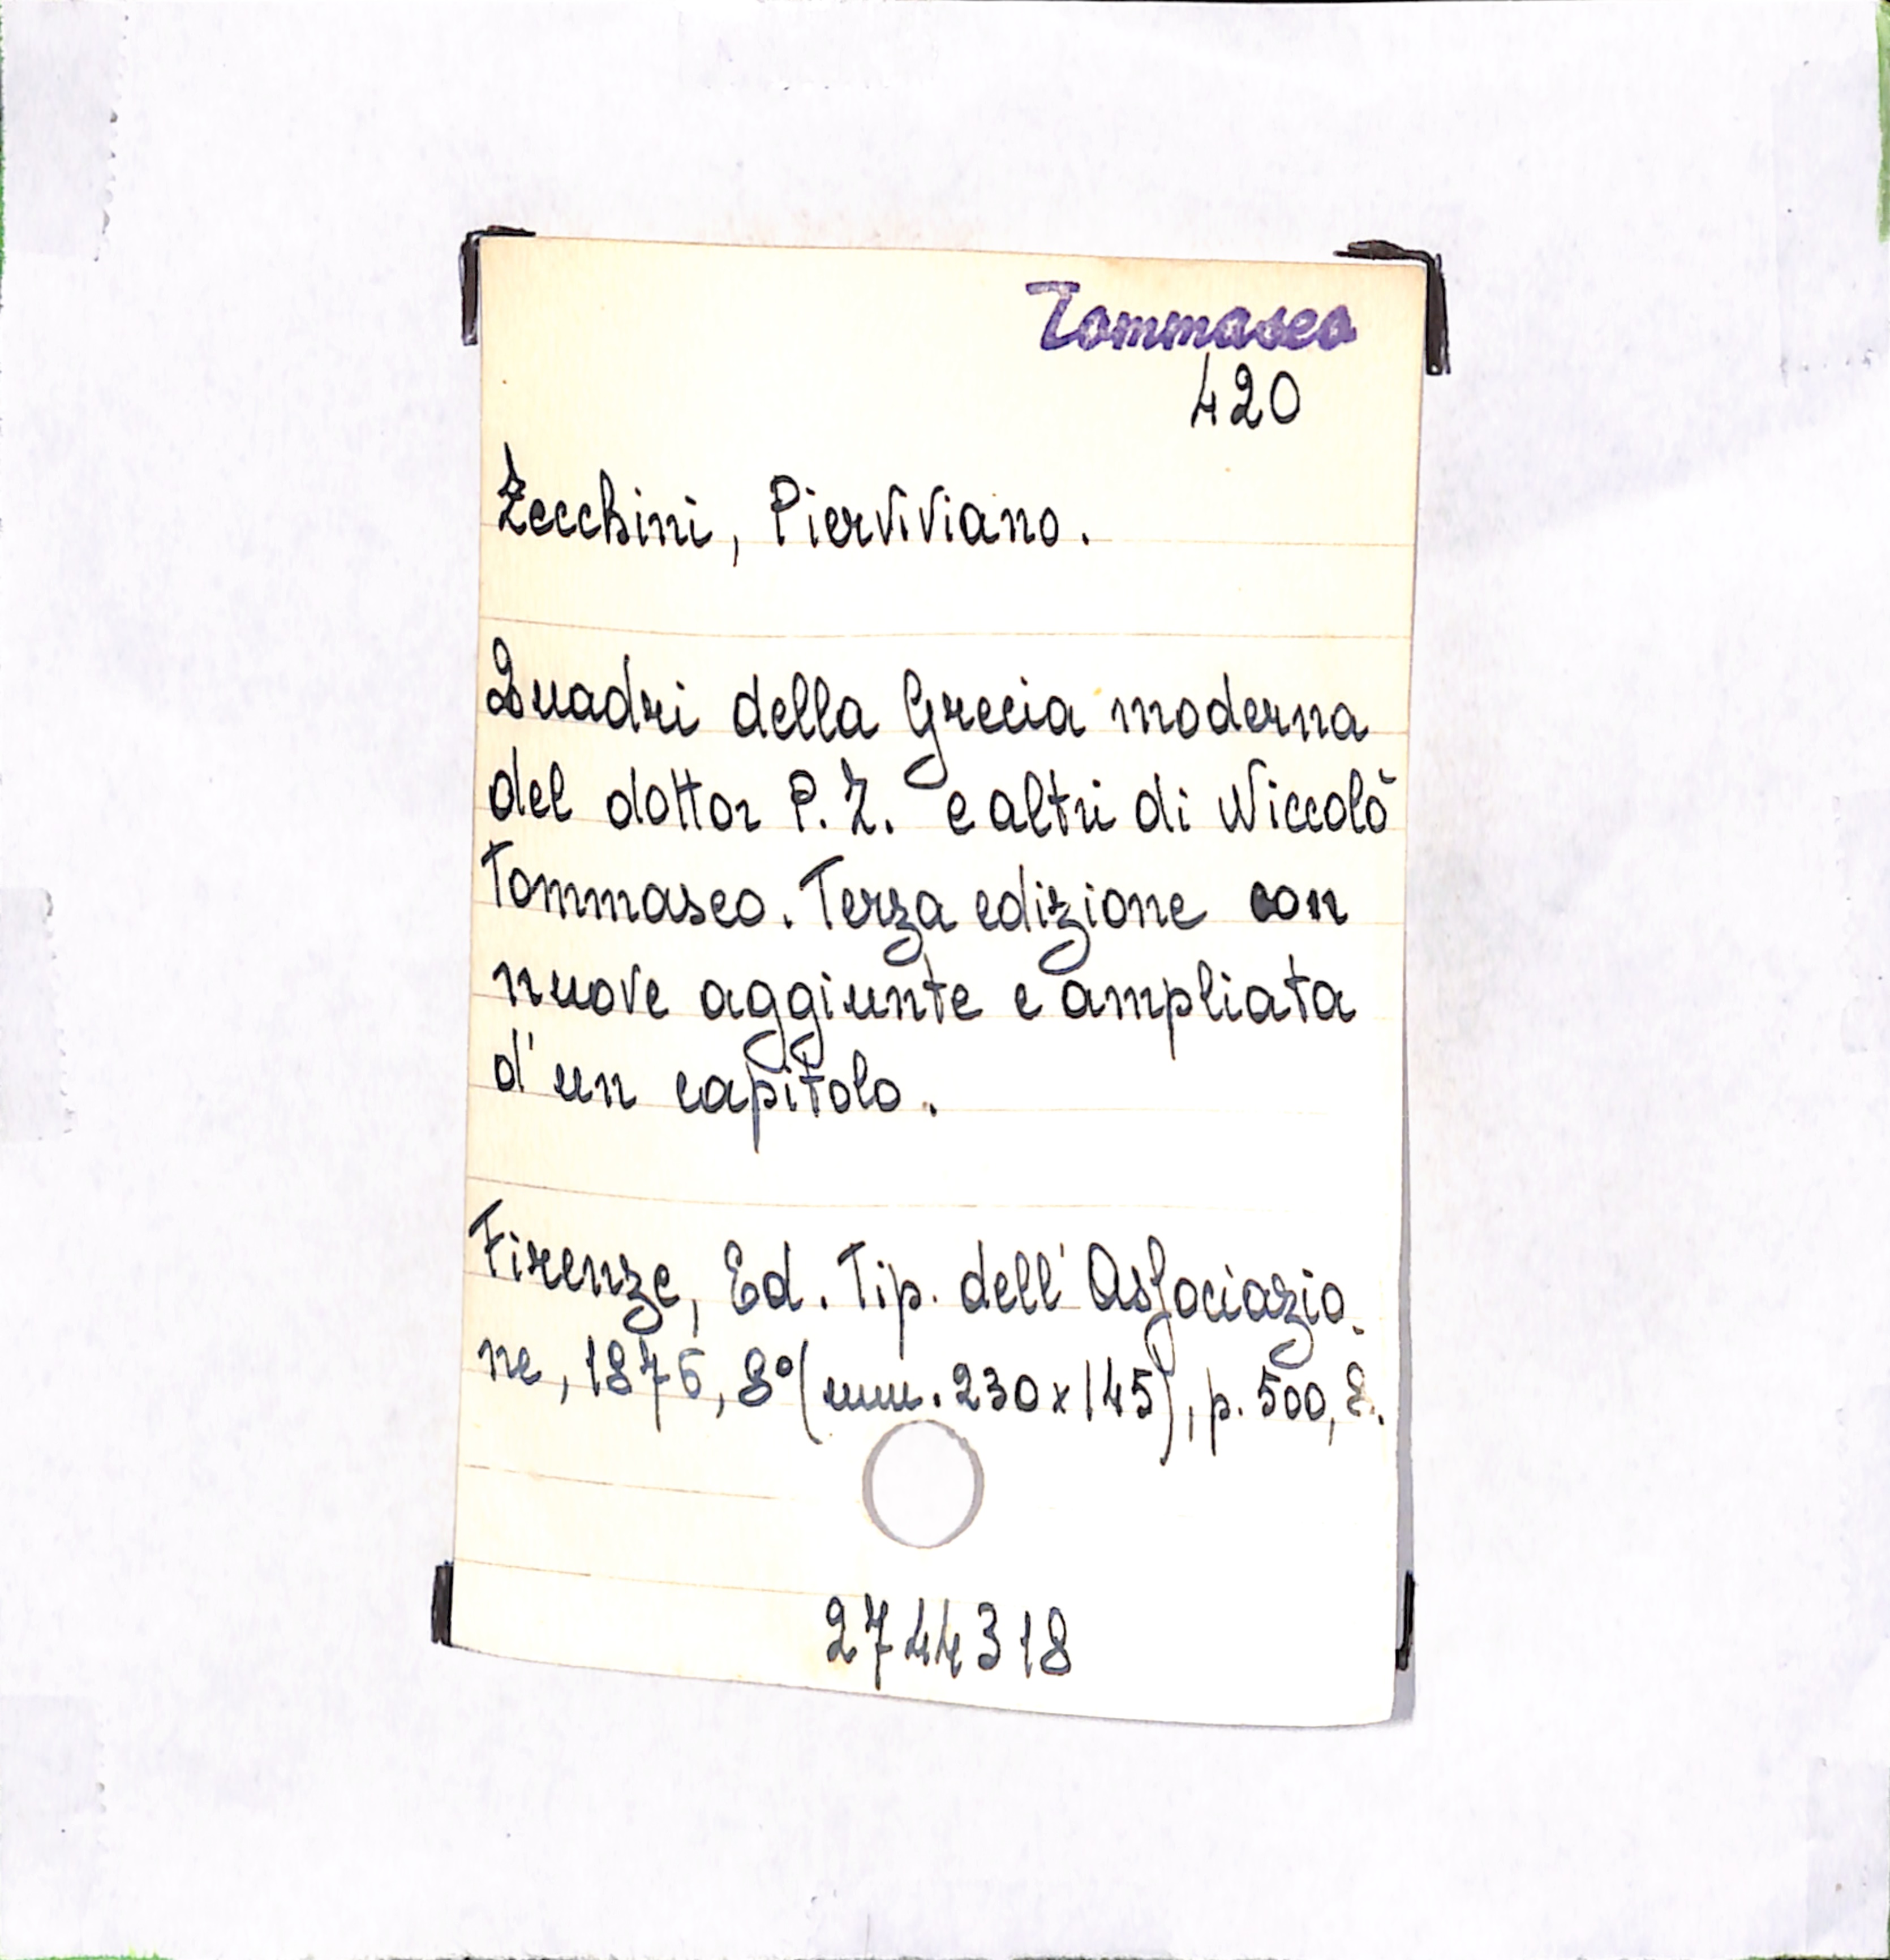 Tommaseo
420
Zecchini, Pierviviano.
Quadri della Grecia moderna
del dottor P. Z. e altri di Niccolò
Tommaseo. Terza edizione con
nuove aggiunte e ampliata
d'un capitolo.
Firenze, Ed. Tip. dell'Associazio-
ne, 1876, 8° (mm. 230x145), p. 500, 2.
2744318